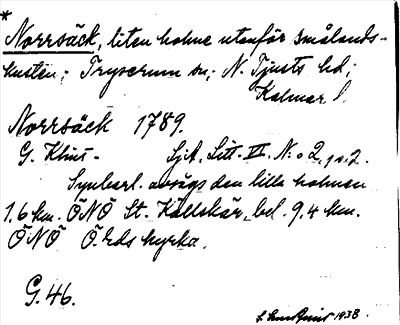 *
Norrsäck, liten holme utanför smålands-
kusten; Tryserum sn; N. Tjusts hd;
Kalmar l.
Norrsäck 1789.
G. Klint - Sjk. Litt. VI. N:o 2, s. 2.
Synbarl. avsågs den lilla holmen
1,6 km. ÖNÖ St. Kallskär, bel. 9,4 km.
ÖNÖ Ö. Eds kyrka.
G. 46.
1938